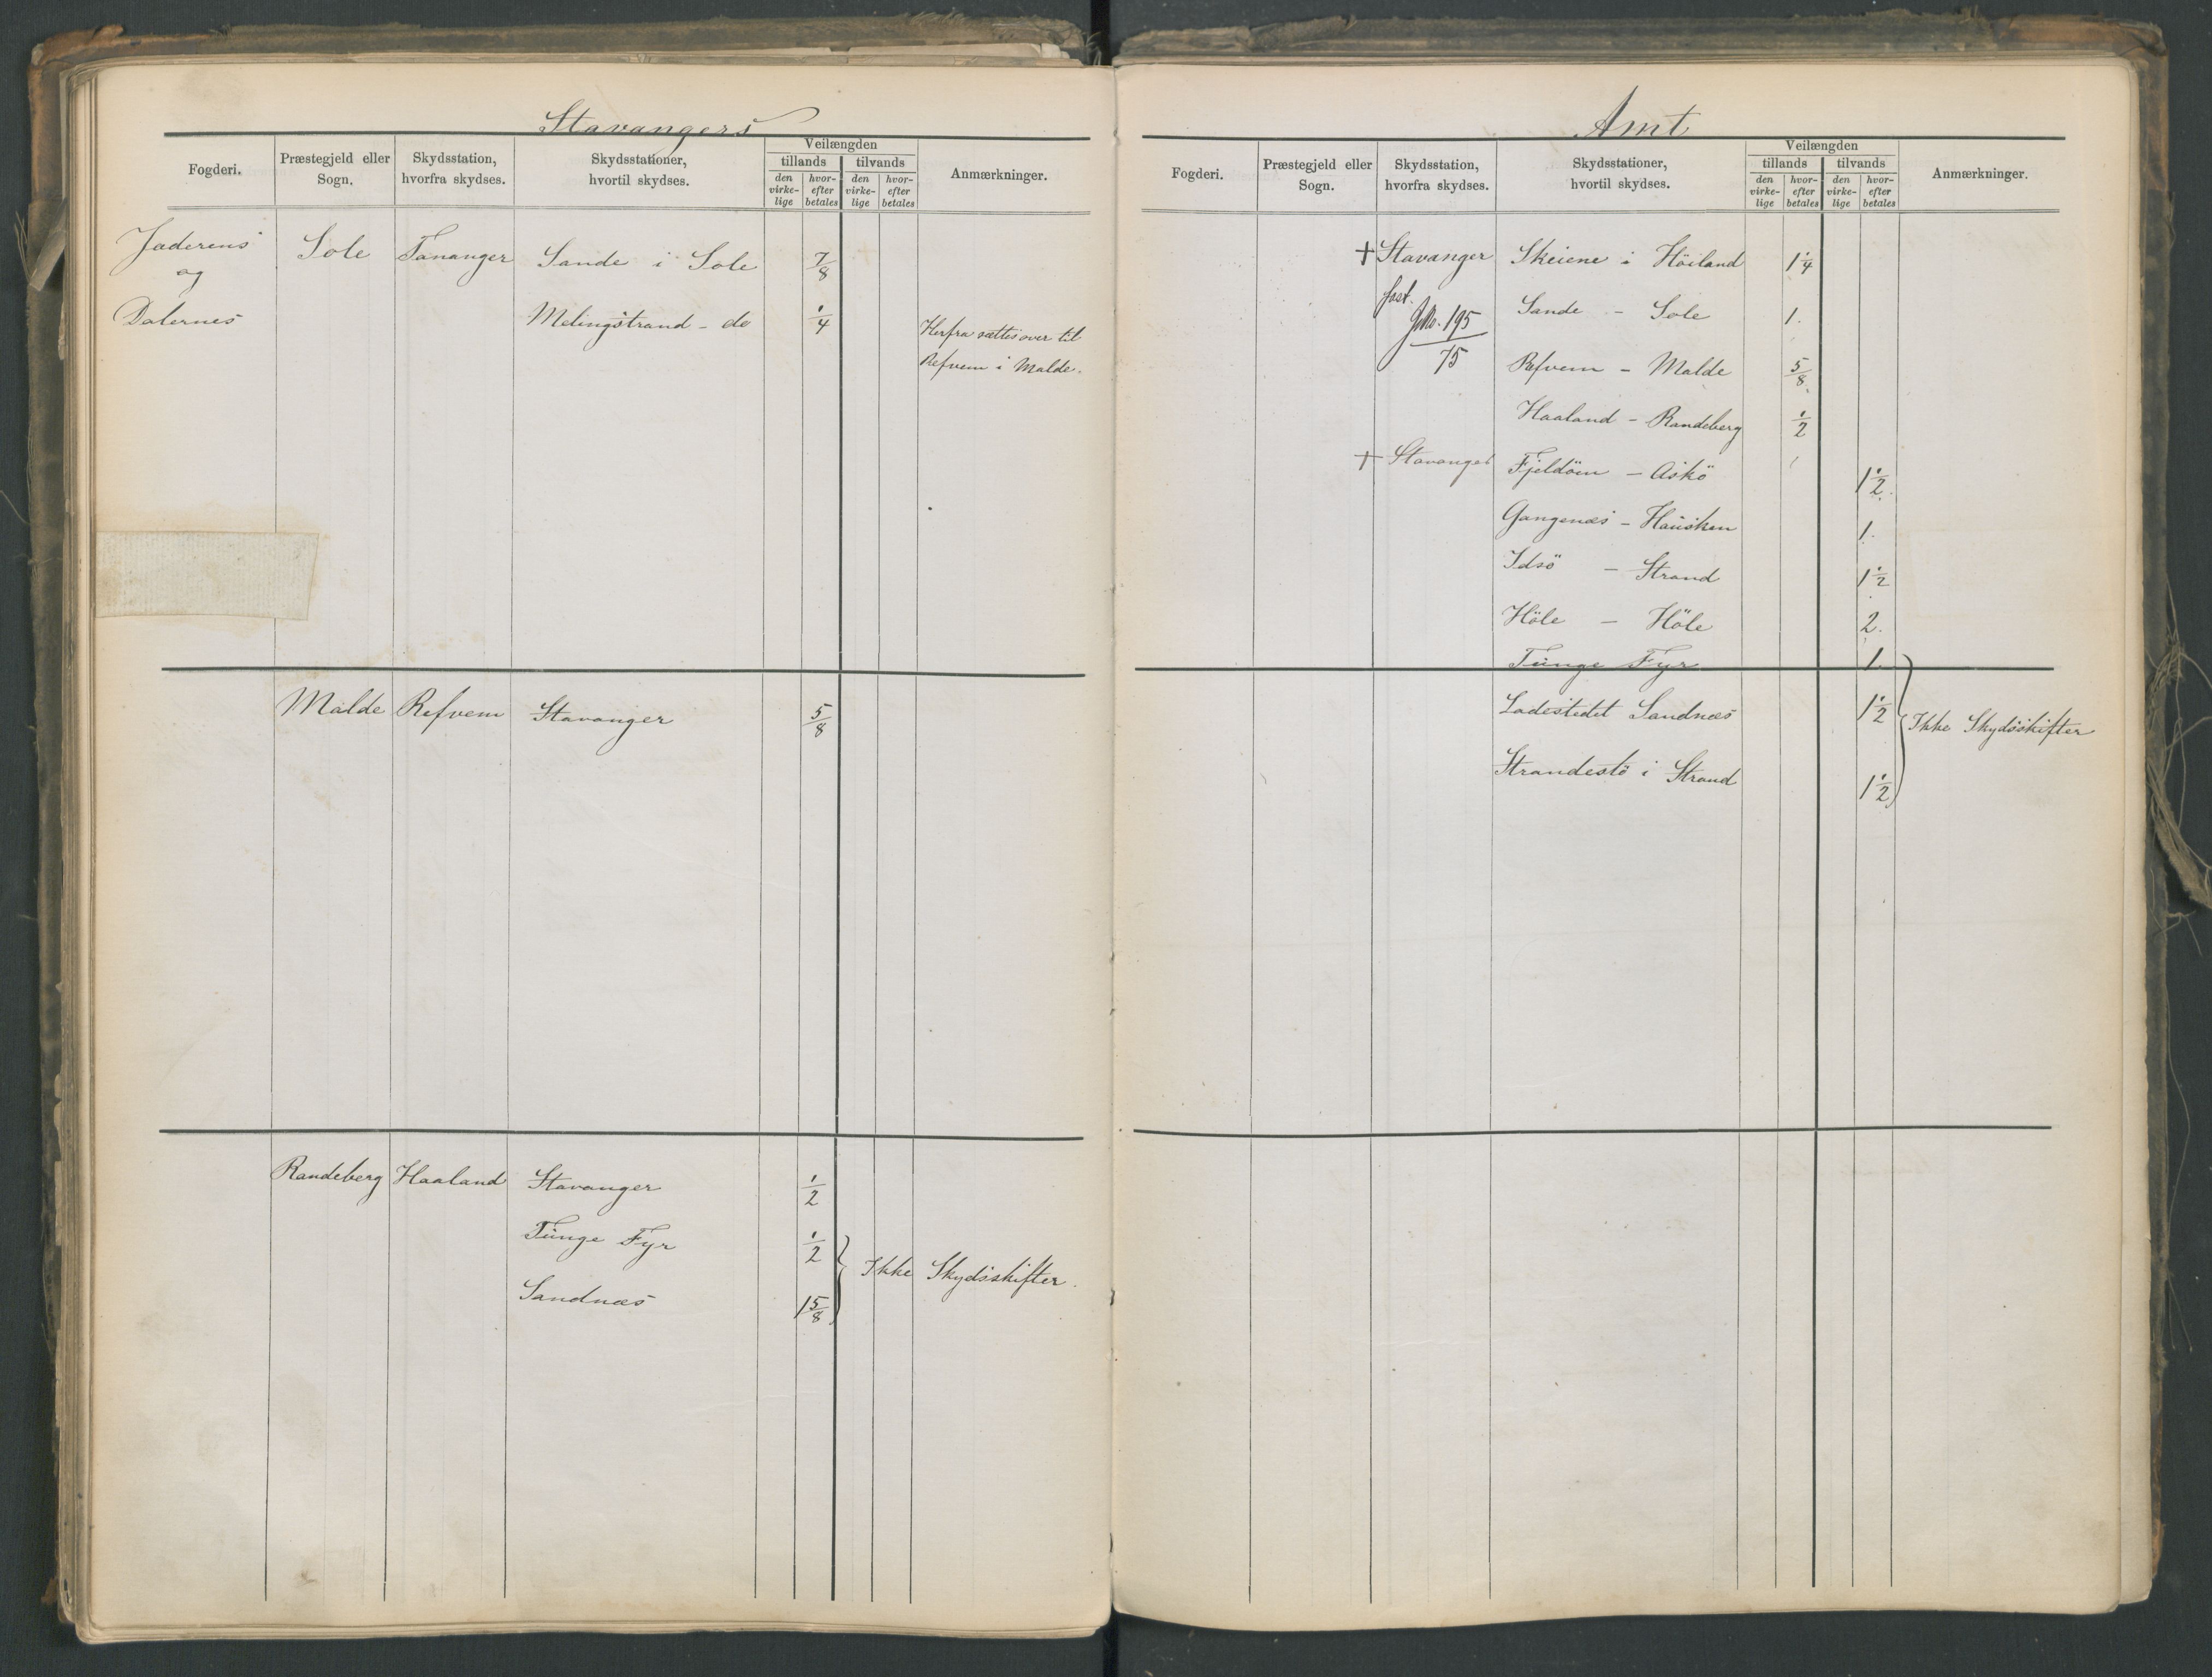 Stavangers
Fogderi.
Præstegjeld eller Sogn.
Skydsstation, hvorfra skydses.
Skydsstationer, hvortil skydses.
Veilængden
tillands tilvands
den virke-lige hvor-efter betales den virke-lige hvor-efter betales
Anmærkninger.
Jæderens og Dalernes
Sole Tananger Sande i Sole 7/8
Melingstrand - do 1/4 Herfra sættes over til
Refvem i Malde.
Malde Refvem Stavanger 5/8
Randeberg Haaland Stavanger 1/2
Tunge Fyr 1/2
Ikke Skydsskifter.
Sandnæs 1 5/8
Amt
Fogderi.
Præstegjeld eller Sogn.
Skydsstation, hvorfra skydses.
Skydsstationer, hvortil skydses.
Veilængden
tillands tilvands
den virke-lige hvor-efter betales den virke-lige hvor-efter betales
Anmærkninger.
+ Stavanger Skeiene i Höiland 1 1/4
fast.
195/75
Sande - Sole 1.
Refvem - Malde 5/8
Haaland - Randeberg 1/2
+ Stavanger Fjeldöen - Askö 1 1/2
Gangenæs - Hausken 1.
Idsö - Strand 1 1/2
Höle - Höle 2.
Tunge Fyr 1.
Ladestedet Sandnæs 1 1/2 Ikke Skydsskifter
Strandestö i Strand 1 1/2